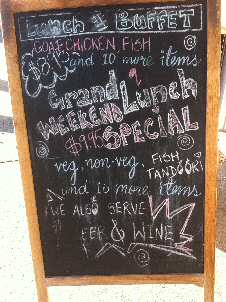 Lunch BUFFET
GOAT CHICKEN FISH
and 10 more items
Grand Lunch
WEEKEND
SPECIAL
veg, non-veg, FISH
TANDOORI
and 10 more items
WE ALSO SERVE
BEER & WINE